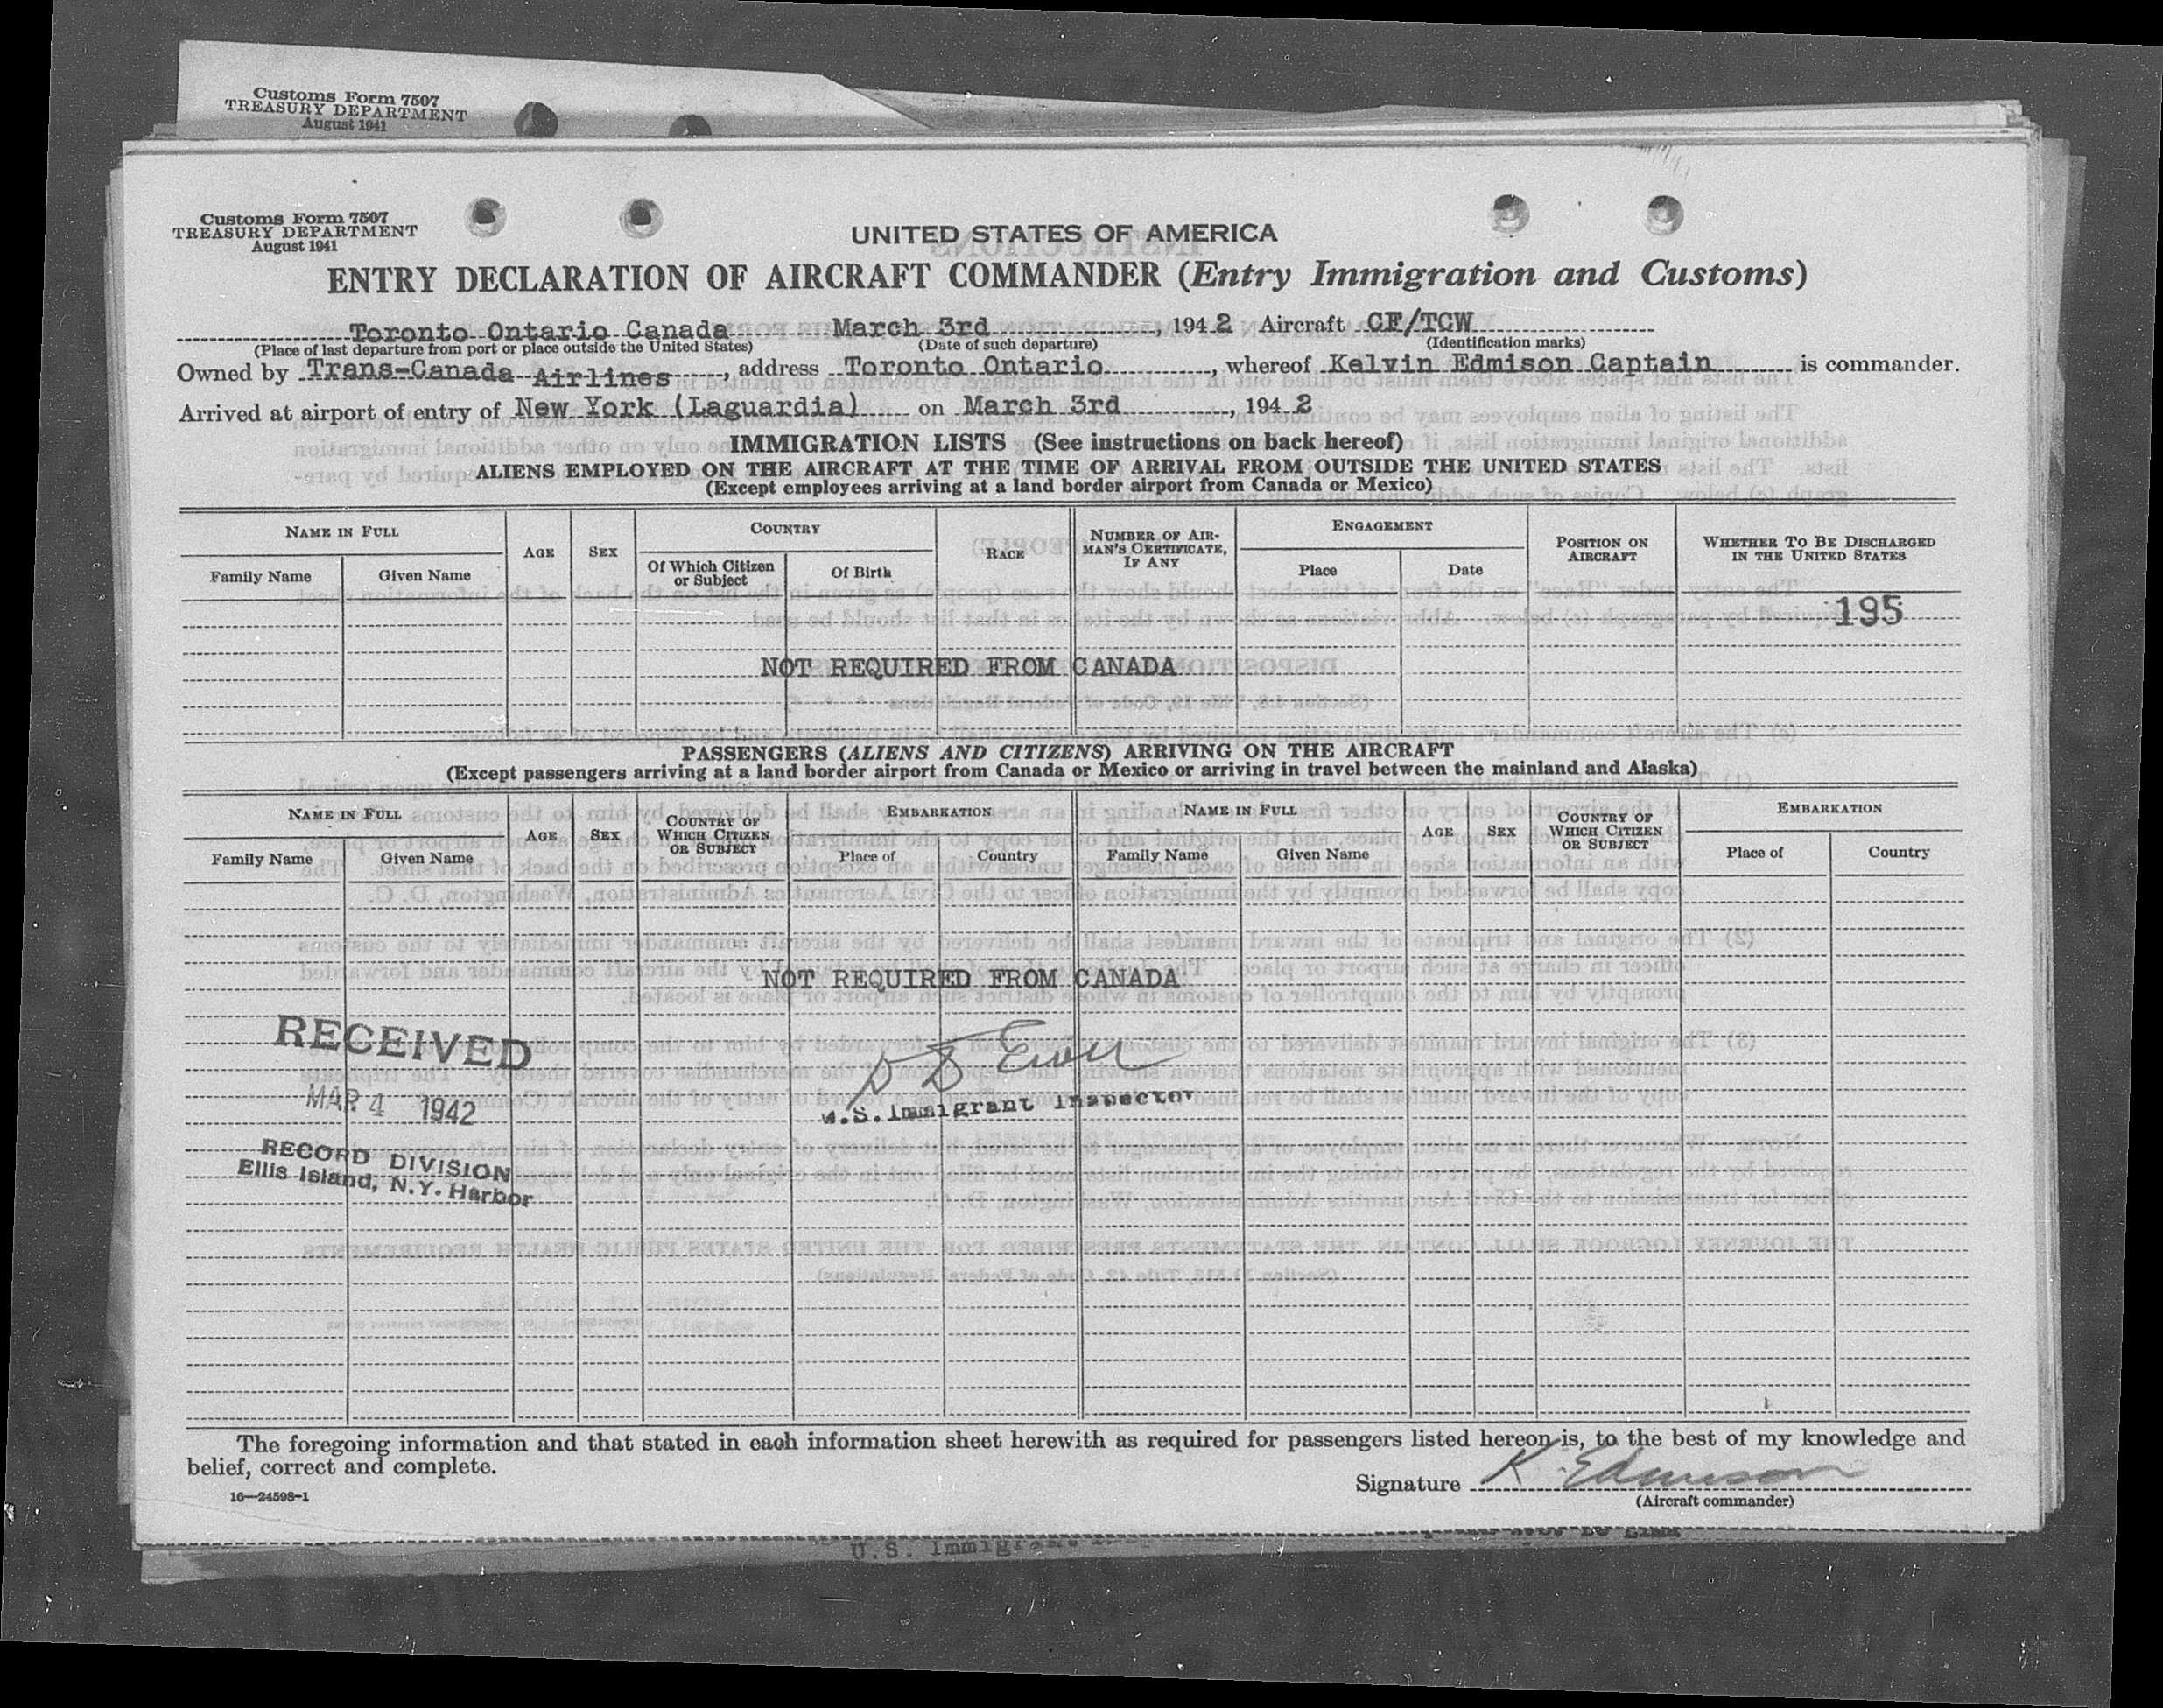 Customs Form 7507
TREASURY DEPARTMENT
August 1941
Customs Form 7507
TREASURY DEPARTMENT
August 1941
UNITED STATES OF AMERICA
ENTRY DECLARATION OF AIRCRAFT COMMANDER (Entry Immigration and Customs)
Toronto Ontario Canada March 3rd, 1942 Aircraft CF/TCW
(Place of last departure from port or place outside the United States) (Date of such departure) (Identification marks)
Owned by Trans-Canada Airlines, address Toronto Ontario, whereof Kelvin Edmison Captain is commander.
Arrived at airport of entry of New York (Laguardia) on March 3rd, 1942
IMMIGRATION LISTS (See instructions on back hereof)
ALIENS EMPLOYED ON THE AIRCRAFT AT THE TIME OF ARRIVAL FROM OUTSIDE THE UNITED STATES
(Except employees arriving at a land border airport from Canada or Mexico)
NAME IN FULL AGE SEX COUNTRY RACE NUMBER OF AIRMAN'S CERTIFICATE, IF ANY ENGAGEMENT POSITION ON AIRCRAFT WHETHER TO BE DISCHARGED IN THE UNITED STATES
Family Name Given Name Of Which Citizen or Subject Of Birth Place Date
195
NOT REQUIRED FROM CANADA
PASSENGERS (ALIENS AND CITIZENS) ARRIVING ON THE AIRCRAFT
(Except passengers arriving at a land border airport from Canada or Mexico or arriving in travel between the mainland and Alaska)
NAME IN FULL AGE SEX COUNTRY OF WHICH CITIZEN OR SUBJECT EMBARKATION NAME IN FULL AGE SEX COUNTRY OF WHICH CITIZEN OR SUBJECT EMBARKATION
Family Name Given Name Place of Country Family Name Given Name Place of Country
NOT REQUIRED FROM CANADA
RECEIVED
MAR 4 1942
RECORD DIVISION
Ellis Island, N.Y. Harbor
U.S. Immigrant Inspector
The foregoing information and that stated in each information sheet herewith as required for passengers listed hereon is, to the best of my knowledge and
belief, correct and complete.
Signature K. Edmison
(Aircraft commander)
16—24598-1
U.S. Immigrant